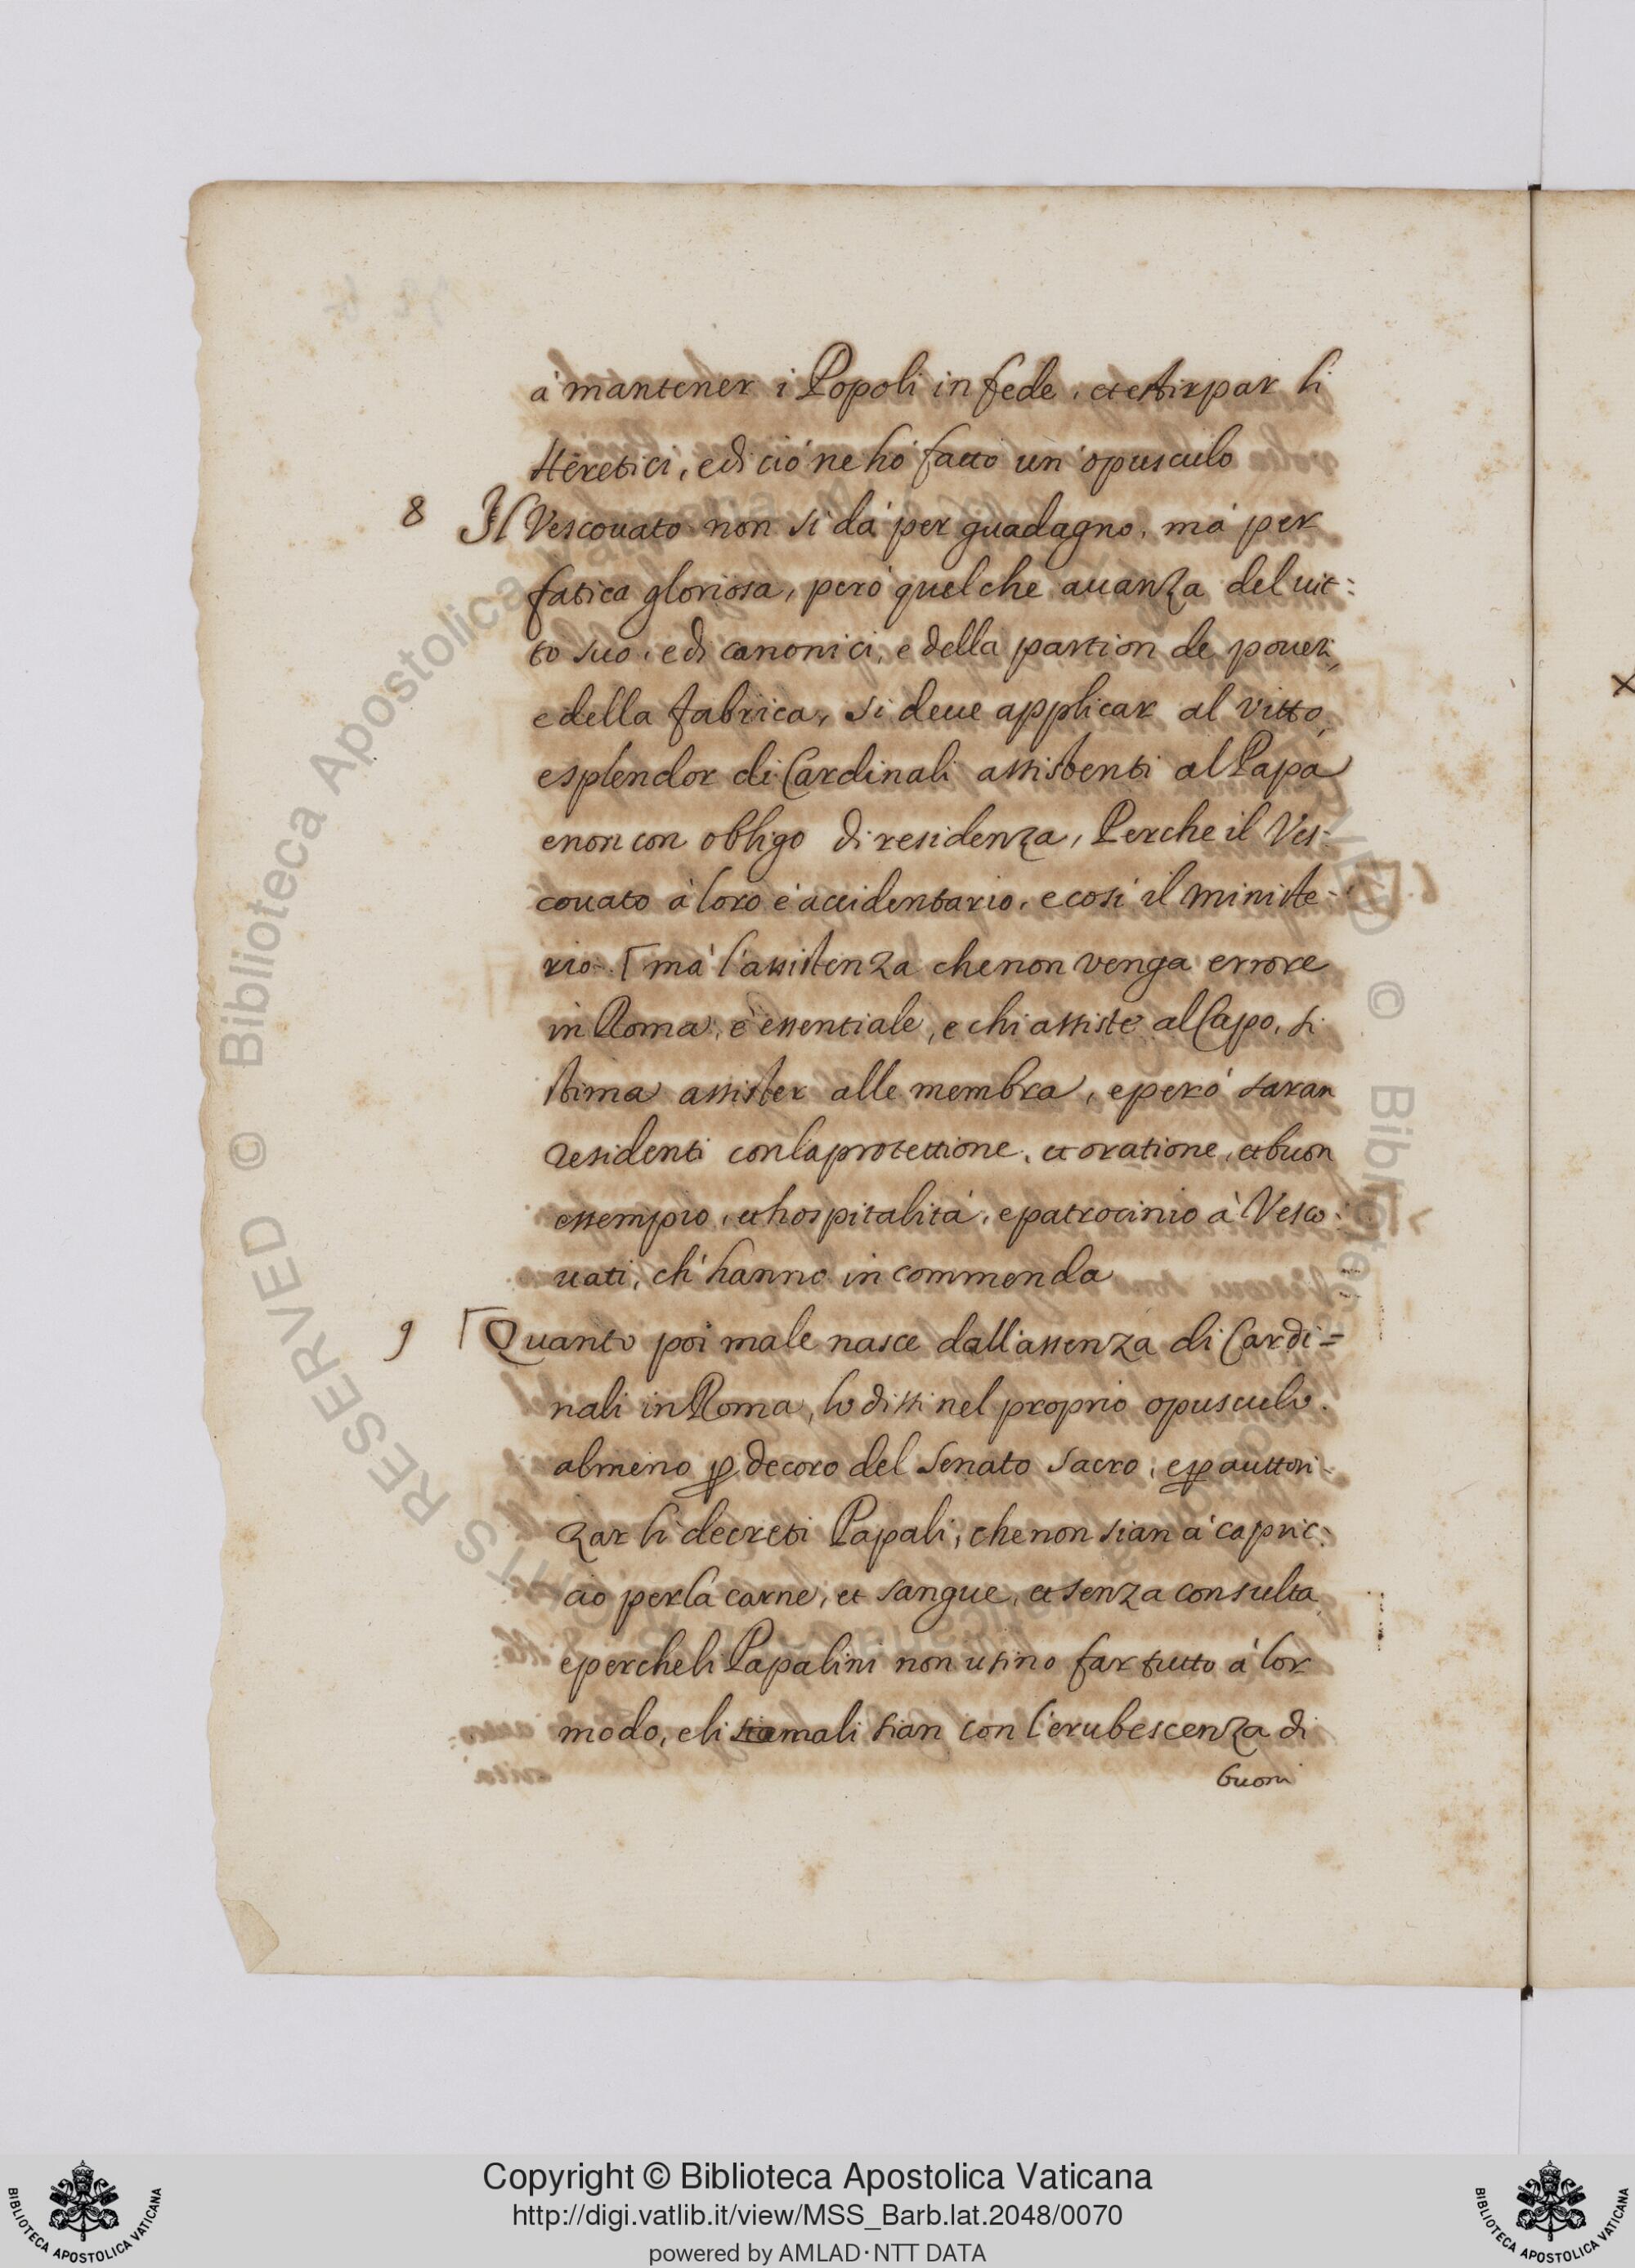 à mantener i Popoli in fede, et estirpar li
Heretici, e di ciò ne hò fatto un' opusculo
8 Il Vescouato non si dà per guadagno, mà per
fatica gloriosa, però quel che auanza del uit:
to suo, e di canonici, e della partion de poueri,
e della fabrica, si deue applicar al vitto,
e splendor di Cardinali assistenti al Papa
e non con obligo di residenza, Perche il Ves-
couato à loro è accidentario, e così il ministe-
rio. ⌈ mà l'assistenza che non venga errore
in Roma, è essentiale, e chi assiste al Capo, si
stima assister alle membra, e però saran
residenti con la protettione, et oratione, et buon
essempio, et hospitalità, e patrocinio à Vesco:
uati, ch' hanno in commenda
9 ⌈ Quanto poi male nasce dall'assenza di Cardi=
nali in Roma, lo dissi nel proprio opusculo.
almeno ꝑ decoro del Senato Sacro, e ꝑ auttori-
zar li decreti Papali, che non sian à capric:
cio per la carne, et sangue, et senza consulta
e perche li Papalini non usino far tutto à lor
modo, e li mali sian con l'erubescenza di
buoni
Copyright © Biblioteca Apostolica Vaticana
http://digi.vatlib.it/view/MSS_Barb.lat.2048/0070
powered by AMLAD·NTT DATA
BIBLIOTECA APOSTOLICA VATICANA
BIBLIOTECA APOSTOLICA VATICANA